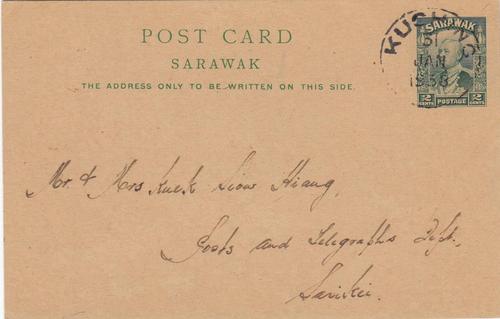 POST CARD
SARAWAK
THE ADDRESS ONLY TO BE WRITTEN ON THIS SIDE.
KUCHING
JAN
SARAWAK
2 CENTS POSTAGE 2 CENTS
Mr. & Mrs Kuek Siow Hiang,
Posts and Telegraphs Dept.,
Sarikei.